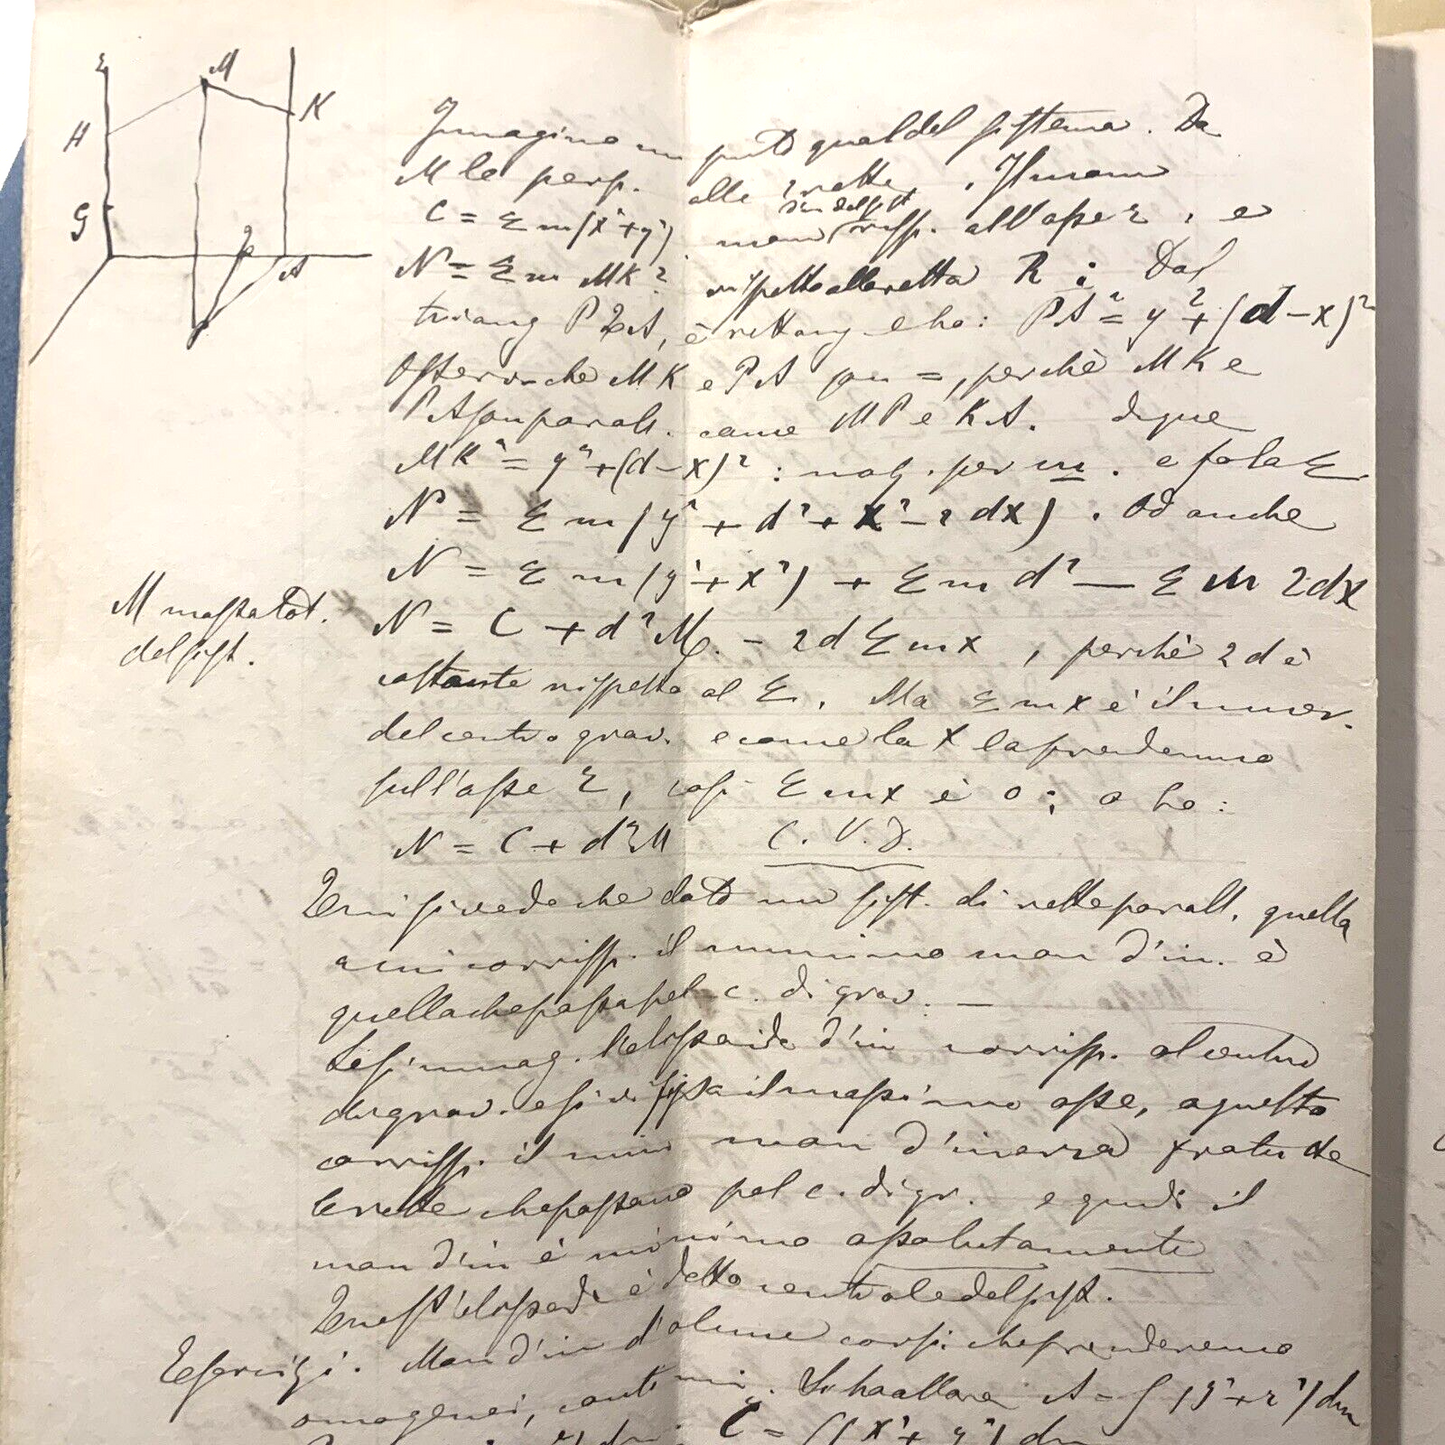 z
M
K
H
G
P
A
Immagino un punto qual del sistema. Da
M le perp. alle 2 rette. Il mom
C = Σ m(x²+y²) mom d'in del sist risp. all'asse z, e
N = Σ m MK² rispetto alla retta R; Dal
triang P A, è rettang e ho: PA² = y² + (d-x)²
Osservo che MK e PA son =, perchè MK e
PA son parall. come MP e KA. dque
MK² = y² + (d-x)² : molt. per m. e fo la Σ
N = Σ m (y² + d² + x² - 2dx). Od anche
N = Σ m (y² + x²) + Σ m d² — Σ m 2dx
M massa tot.
del sist.
N = C + d² M - 2d Σ mx, perchè 2d è
costante rispetto al Σ. Ma Σ mx è il mom.
del centro grav. e come la x la prenderemo
sull'asse z, così Σ mx è 0; o ho:
N = C + d²M C.V.D.
Qui si vede che dato un sist. di rette parall. quella
a cui corrisp. il minimo mom d'in. è
quella che passa pel c. di grav. —
Se si immag. l'elissoide d'in corrisp. al centro
di grav. e si fissa il massimo asse, a questo
corrisp. il min mom d'inerzia fra tutte
le rette che passano pel c. di gr. e quindi il
mom d'in è minimo assolutamente
Quest'elissoide è detto centrale del sist.
Esercizi. Mom d'in d'alcuni corpi che prenderemo
omogenei, contini. Si ha allora A = ∫(y²+z²)dm
C = ∫(x²+y²)dm